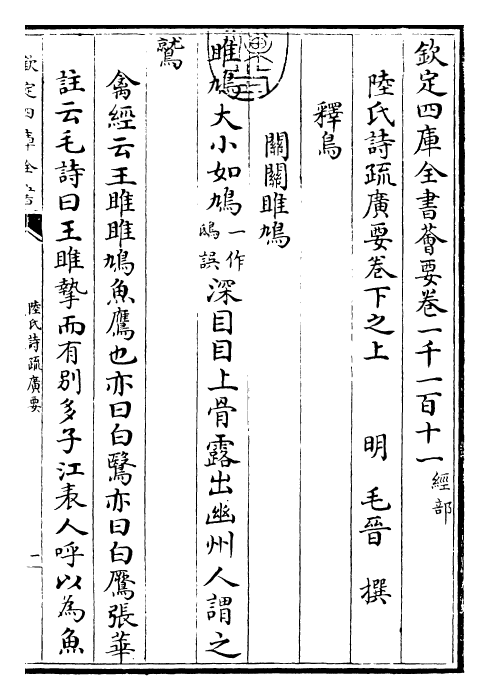 欽定四庫全書薈要卷一千一百十一經部
陸氏詩疏廣要卷下之上
明 毛晉 撰
釋鳥
關關雎鳩
雎鳩大小如鳩一作鴟誤深目目上骨露出幽州人謂之
鷲
禽經云王雎雎鳩魚鷹也亦曰白鷖亦曰白鷹張華
註云毛詩曰王雎摯而有別多子江表人呼以為魚
欽定四庫全書
陸氏詩疏廣要
一